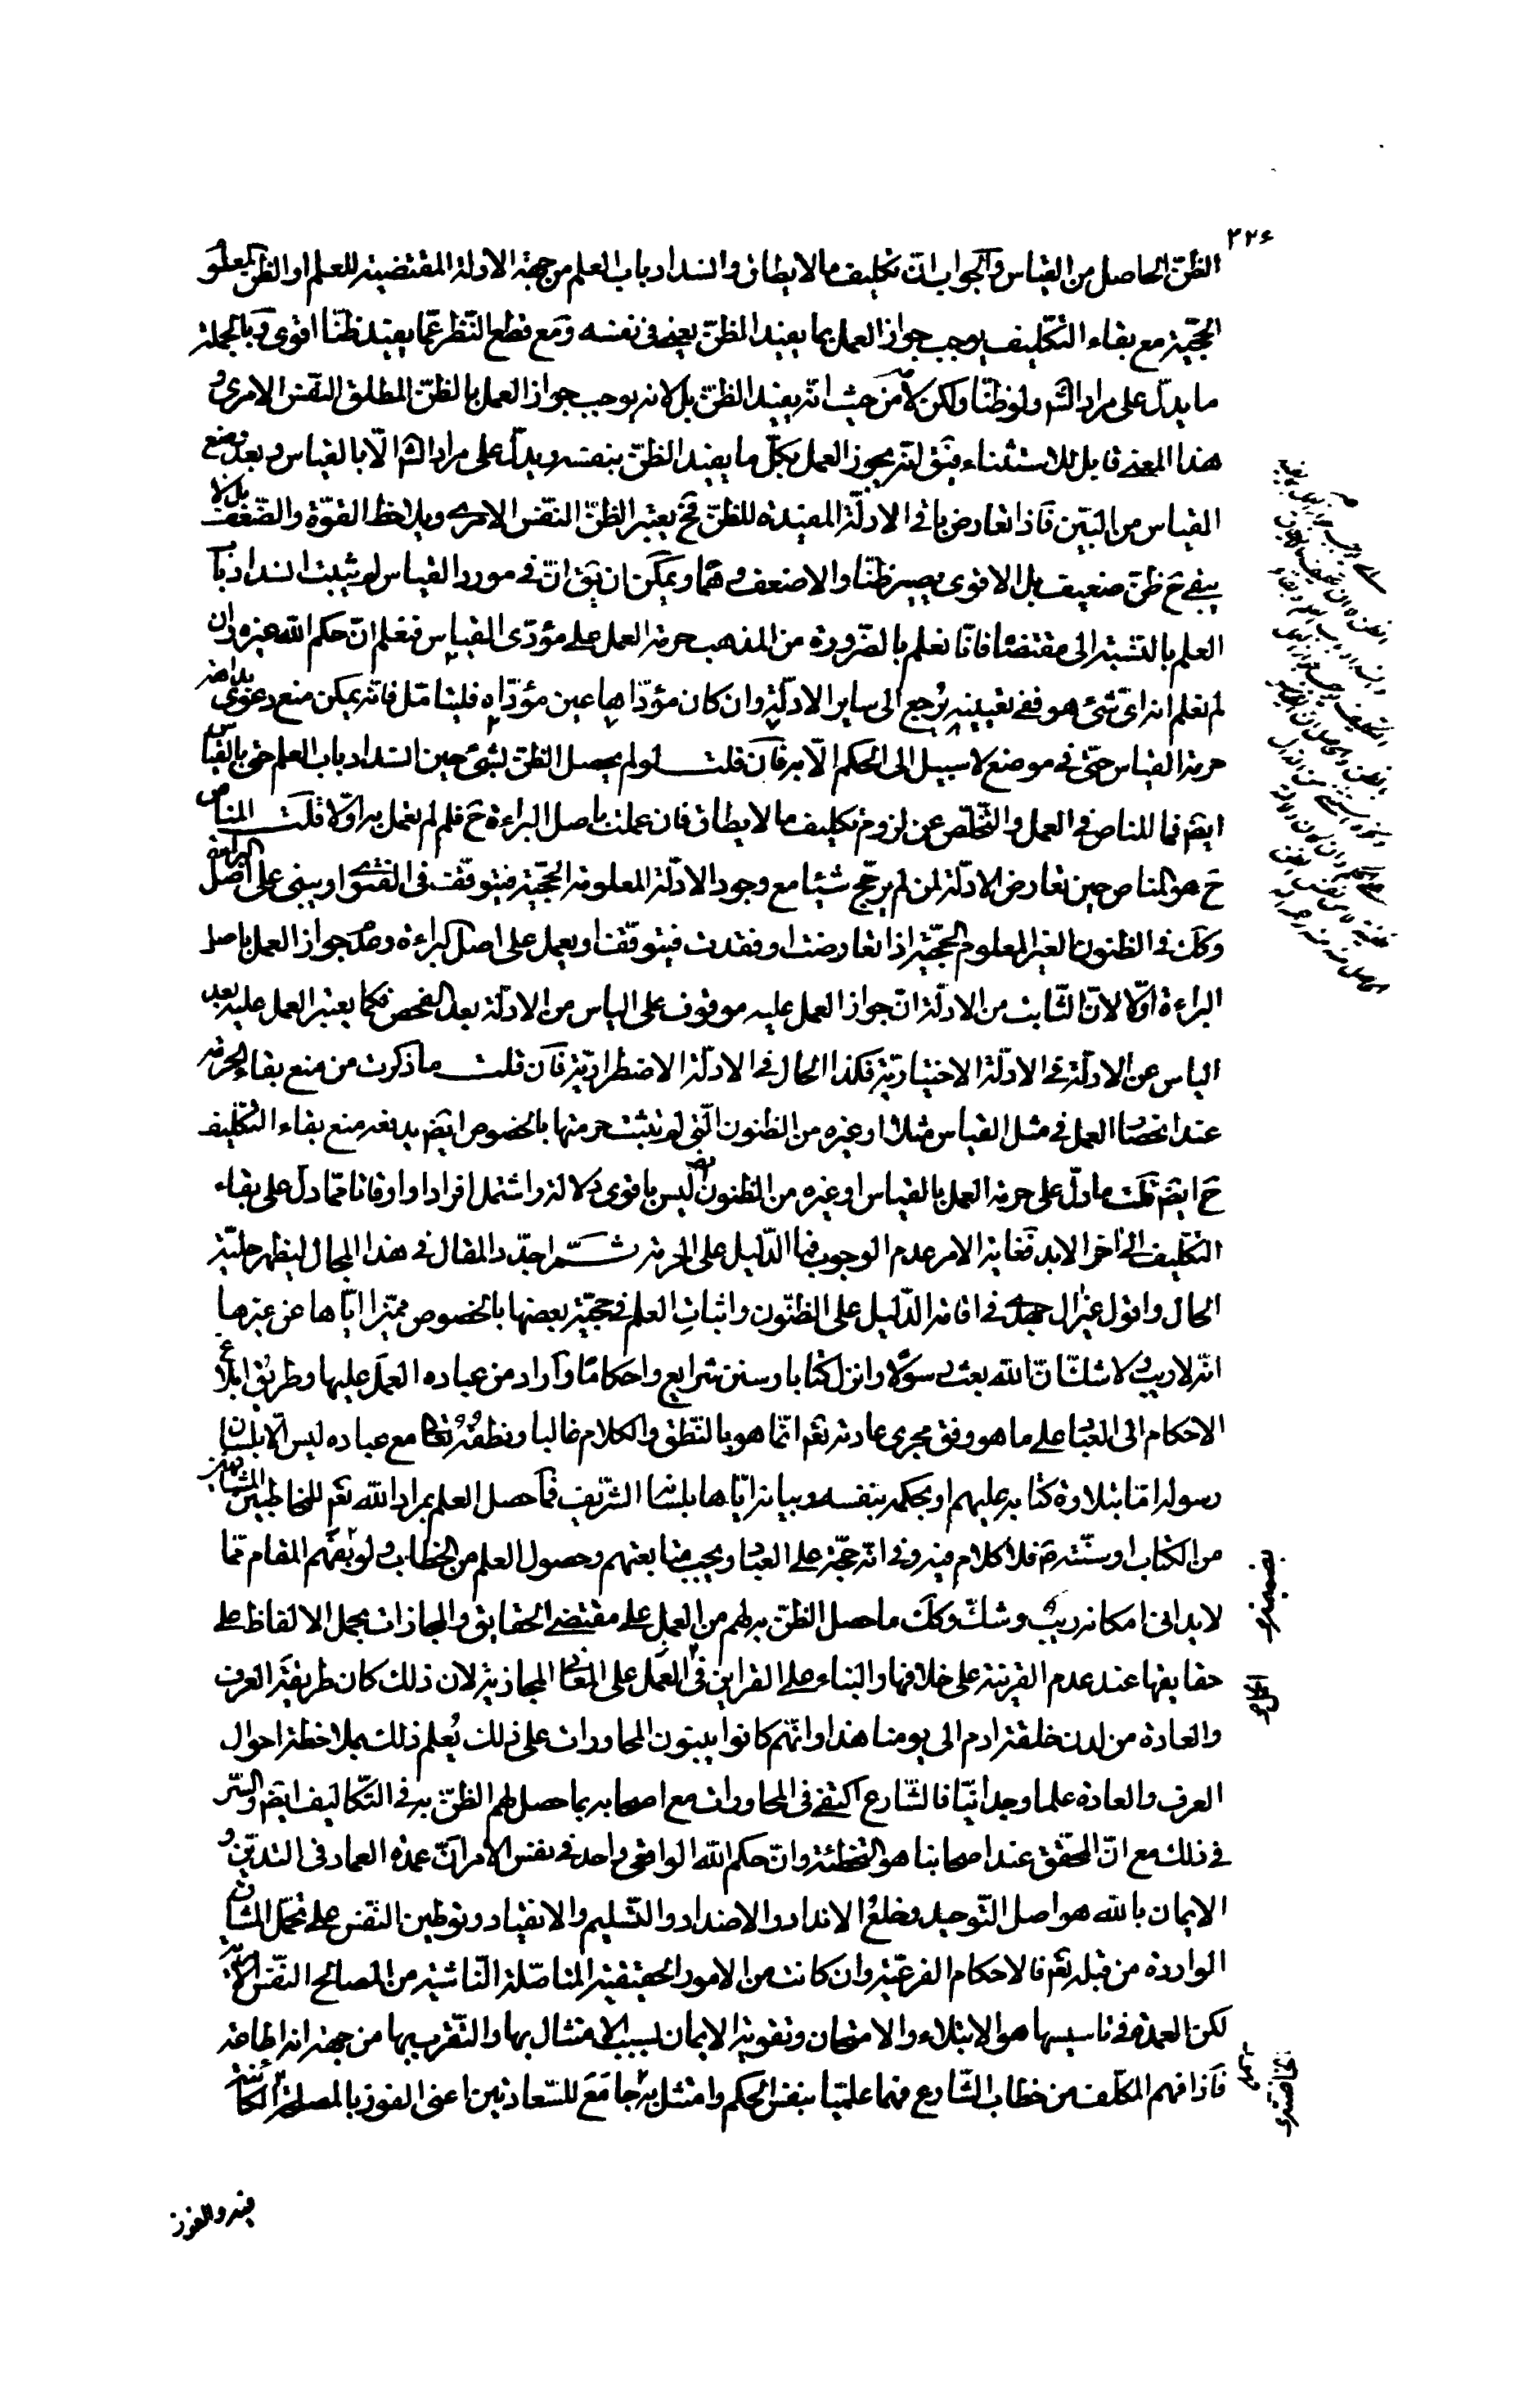 ٢٢۶
الظنّ الحاصل من القياس والجواب انّ تكليف ما لا يطاق وانسداد باب العلم من جهة الادلة المقتضية للعلم او الظن المعلوم
الحجّية مع بقاء التكليف يوجب جواز العمل بما يفيد الظنّ يعنى فى نفسه ومع قطع النّظر عمّا يفيد ظنّا اقوى وبالجملة
ما يدلّ على مراد الشم ولو ظنّا ولكن لا من حيث انّه يفيد الظنّ بل لانه يوجب جواز العمل بالظنّ المطلق النّفس الامرى و
هذا المعنى قابل للاستثناء فيق انّه يجوز العمل بكلّ ما يفيد الظنّ بنفسه ويدلّ على مراد الشم الّا بالقياس وبعد وضع
القياس من البين فاذا تعارض باقى الادلّة المفيدة للظنّ فح يعتبر الظنّ النّفس الامرى ويلاحظ القوّة والضّعف بل لا
يبقى ح ظنّ ضعيف بل الاقوى يصير ظنّا والاضعف وهما ويمكن ان يق انّ فى مورد القياس لم يثبت انسداد باب
العلم بالنّسبة الى مقتضاه فانّا نعلم بالضّرورة من المذهب حرمة العمل على مؤدّى القياس فنعلم انّ حكم الله غيره وان
لم نعلم انه اىّ شئ هو ففى تعيينه يُرجع الى ساير الادلّة وان كان مؤدّاها عين مؤدّاه فليتامّل فانّه يمكن منع دعوى بداهة
حرمة القياس حتّى فى موضع لا سبيل الى الحكم الّا به فان قلت لو لم يحصل الظنّ لشئ حين انسداد باب العلم حتى بالقياس
ايضم فما المناص فى العمل والتّخلّص عن لزوم تكليف ما لا يطاق فان عملت باصل البراءة ح فلم لم تعمل به اوّلا قلت المناص
ح هو المناص حين تعارض الادلّة لمن لم يرجّح شيئا مع وجود الادلّة المعلومة الحجّية فيتوقّف فى الفتوى او يبنى على اصل البراءة
وكك فى الظنون الغير المعلوم الحجّية اذا تعارضت او فقدت فيتوقّف او يعمل على اصل البراءة وعدم جواز العمل باصل
البراءة اوّلا لانّ الثّابت من الادلّة انّ جواز العمل عليه موقوف على الياس من الادلّة بعد الفحص فكما يعتبر العمل عليه بعد
الياس عن الادلّة فى الادلّة الاختياريّة فكذا الحال فى الادلّة الاضطراريّة فان قلت ما ذكرت من منع بقاء الحرمة
عند انحصار العمل فى مثل القياس مثلا او غيره من الظنون الّتى لم تثبت حرمتها بالخصوص ايضم يدفعه منع بقاء التكليف
ح ايضم قلت ما دلّ على حرمة العمل بالقياس او غيره من الظنون ليس باقوى دلالة واشتمل افرادا واوقاتا ممّا دلّ على بقاء
التكليف الى اخر الابد فغاية الامر عدم الوجوب فما الدّليل على الحرمة ثمّ اجدّد المقال فى هذا المجال ليظهر جليّة
الحال واقول غير ال جهدى فى اقامة الدّليل على الظنّون واثبات العلم فى حجيّة بعضها بالخصوص مميّزا ايّاها عن غيرها
انّه لا ريب ولا شك انّ الله بعث رسولا وانزل كتابا وسنن شرايع واحكاما واراد من عباده العمل عليها وطريق ابلاغ
الاحكام الى العباد على ما هو وفق مجرى عادته تعم انّما هو بالنّطق والكلام غالبا ونطقه تعالى مع عباده ليس الّا بلسان
رسوله امّا بتلاوة كتابه عليهم او بحكمه بنفسه وبيانه ايّاها بلسانه الشّريف فما حصل العلم بمراد الله تعم للمخاطبين المشافهين
من الكتاب او سنّته ص فلا كلام فيه وفى انّه حجّة على العباد ويجب متابعتهم وحصول العلم من الخطاب ولو بضم المقام ممّا
لا يدانى امكانه ريب وشكّ وكك ما حصل الظنّ به لهم من العمل على مقتضى الحقايق والمجازات بحمل الالفاظ على
حقايقها عند عدم القرينة على خلافها والبناء على القراين فى العمل على المعانى المجازية لان ذلك كان طريقة العرف
والعادة من لدن خلقة ادم الى يومنا هذا وانّهم كانوا يبنون المحاورات على ذلك يُعلم ذلك بملاحظة احوال
العرف والعادة علما وجدانيّا فالشّارع اكتفى فى المحاورات مع اصحابه بما حصل لهم الظنّ به فى التّكاليف ايضم والسّر
فى ذلك مع انّ المحقّق عند اصحابنا هو التخطئة وانّ حكم الله الواقعى واحد فى نفس الامر انّ عمدة العماد فى التديّن و
الايمان بالله هو اصل التّوحيد وخلع الانداد والاضداد والتّسليم والانقياد وتوطين النّفس على تحمّل المشاق
الواردة من قبله تعم فالاحكام الفرعيّة وان كانت من الامور الحقيقية المتاصّلة النّاشية من المصالح النّفس الامرية
لكن العمدة فى تاسيسها هو الابتلاء والامتحان وتقوية الايمان بسبب الامتثال بها والتّقرب بها من جهة انه اطاعة
فاذا فهم المكلّف من خطاب الشّارع فهما علميّا بنفس الحكم وامتثل به جامع للسّعادتين اعنى الفوز بالمصلحة الكائنة
فيه والفوز